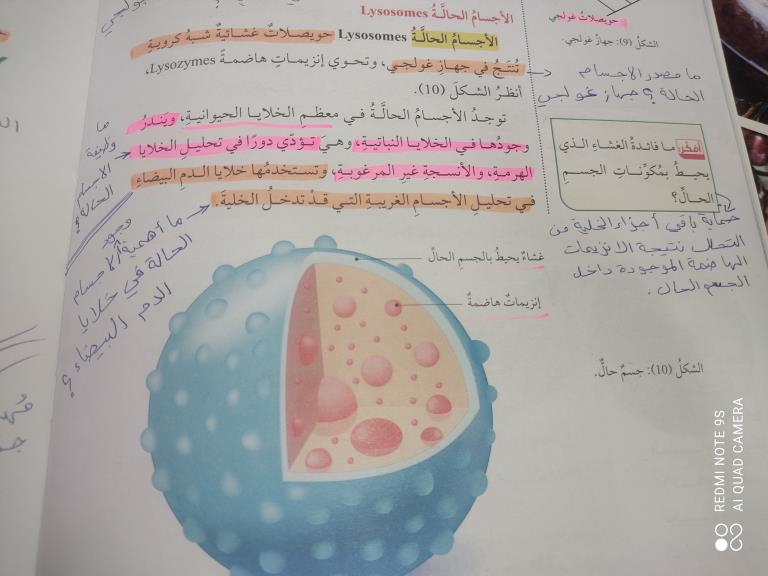 الأجسامُ الحالَّةُ Lysosomes
الأجسامُ الحالَّةُ Lysosomes حويصلاتٌ غشائيةٌ شبهُ كرويةٍ
تُنتَجُ في جهازِ غولجي، وتحوي إنزيماتٍ هاضمةً Lysozymes،
أنظرُ الشكلَ (10).
توجدُ الأجسامُ الحالَّةُ في معظمِ الخلايا الحيوانيةِ، ويندرُ
وجودُها في الخلايا النباتيةِ، وهيَ تؤدّي دورًا في تحليلِ الخلايا
الهرمةِ، والأنسجةِ غيرِ المرغوبةِ، وتستخدمُها خلايا الدمِ البيضاءُ
في تحليلِ الأجسامِ الغريبةِ التي قدْ تدخلُ الخليةَ.
حويصلاتُ غولجي
الشكلُ (9): جهازُ غولجي.
ما مصدر الاجسام
الحالة؟ جهاز غولجي
أفكِّر: ما فائدةُ الغشاءِ الذي
يحيطُ بمُكوِّناتِ الجسمِ
الحالِّ؟
حماية باقي أجزاء الخلية من
التحلل نتيجة الانزيمات
الهاضمة الموجودة داخل
الجسم الحال.
ما
وظيفة
الاجسام
الحالة؟
ما أهمية وجود الاجسام
الحالة في خلايا
الدم البيضاء؟
غشاءٌ يحيطُ بالجسمِ الحالِّ
إنزيماتٌ هاضمةٌ
الشكلُ (10): جسمٌ حالٌّ.
REDMI NOTE 9S
AI QUAD CAMERA